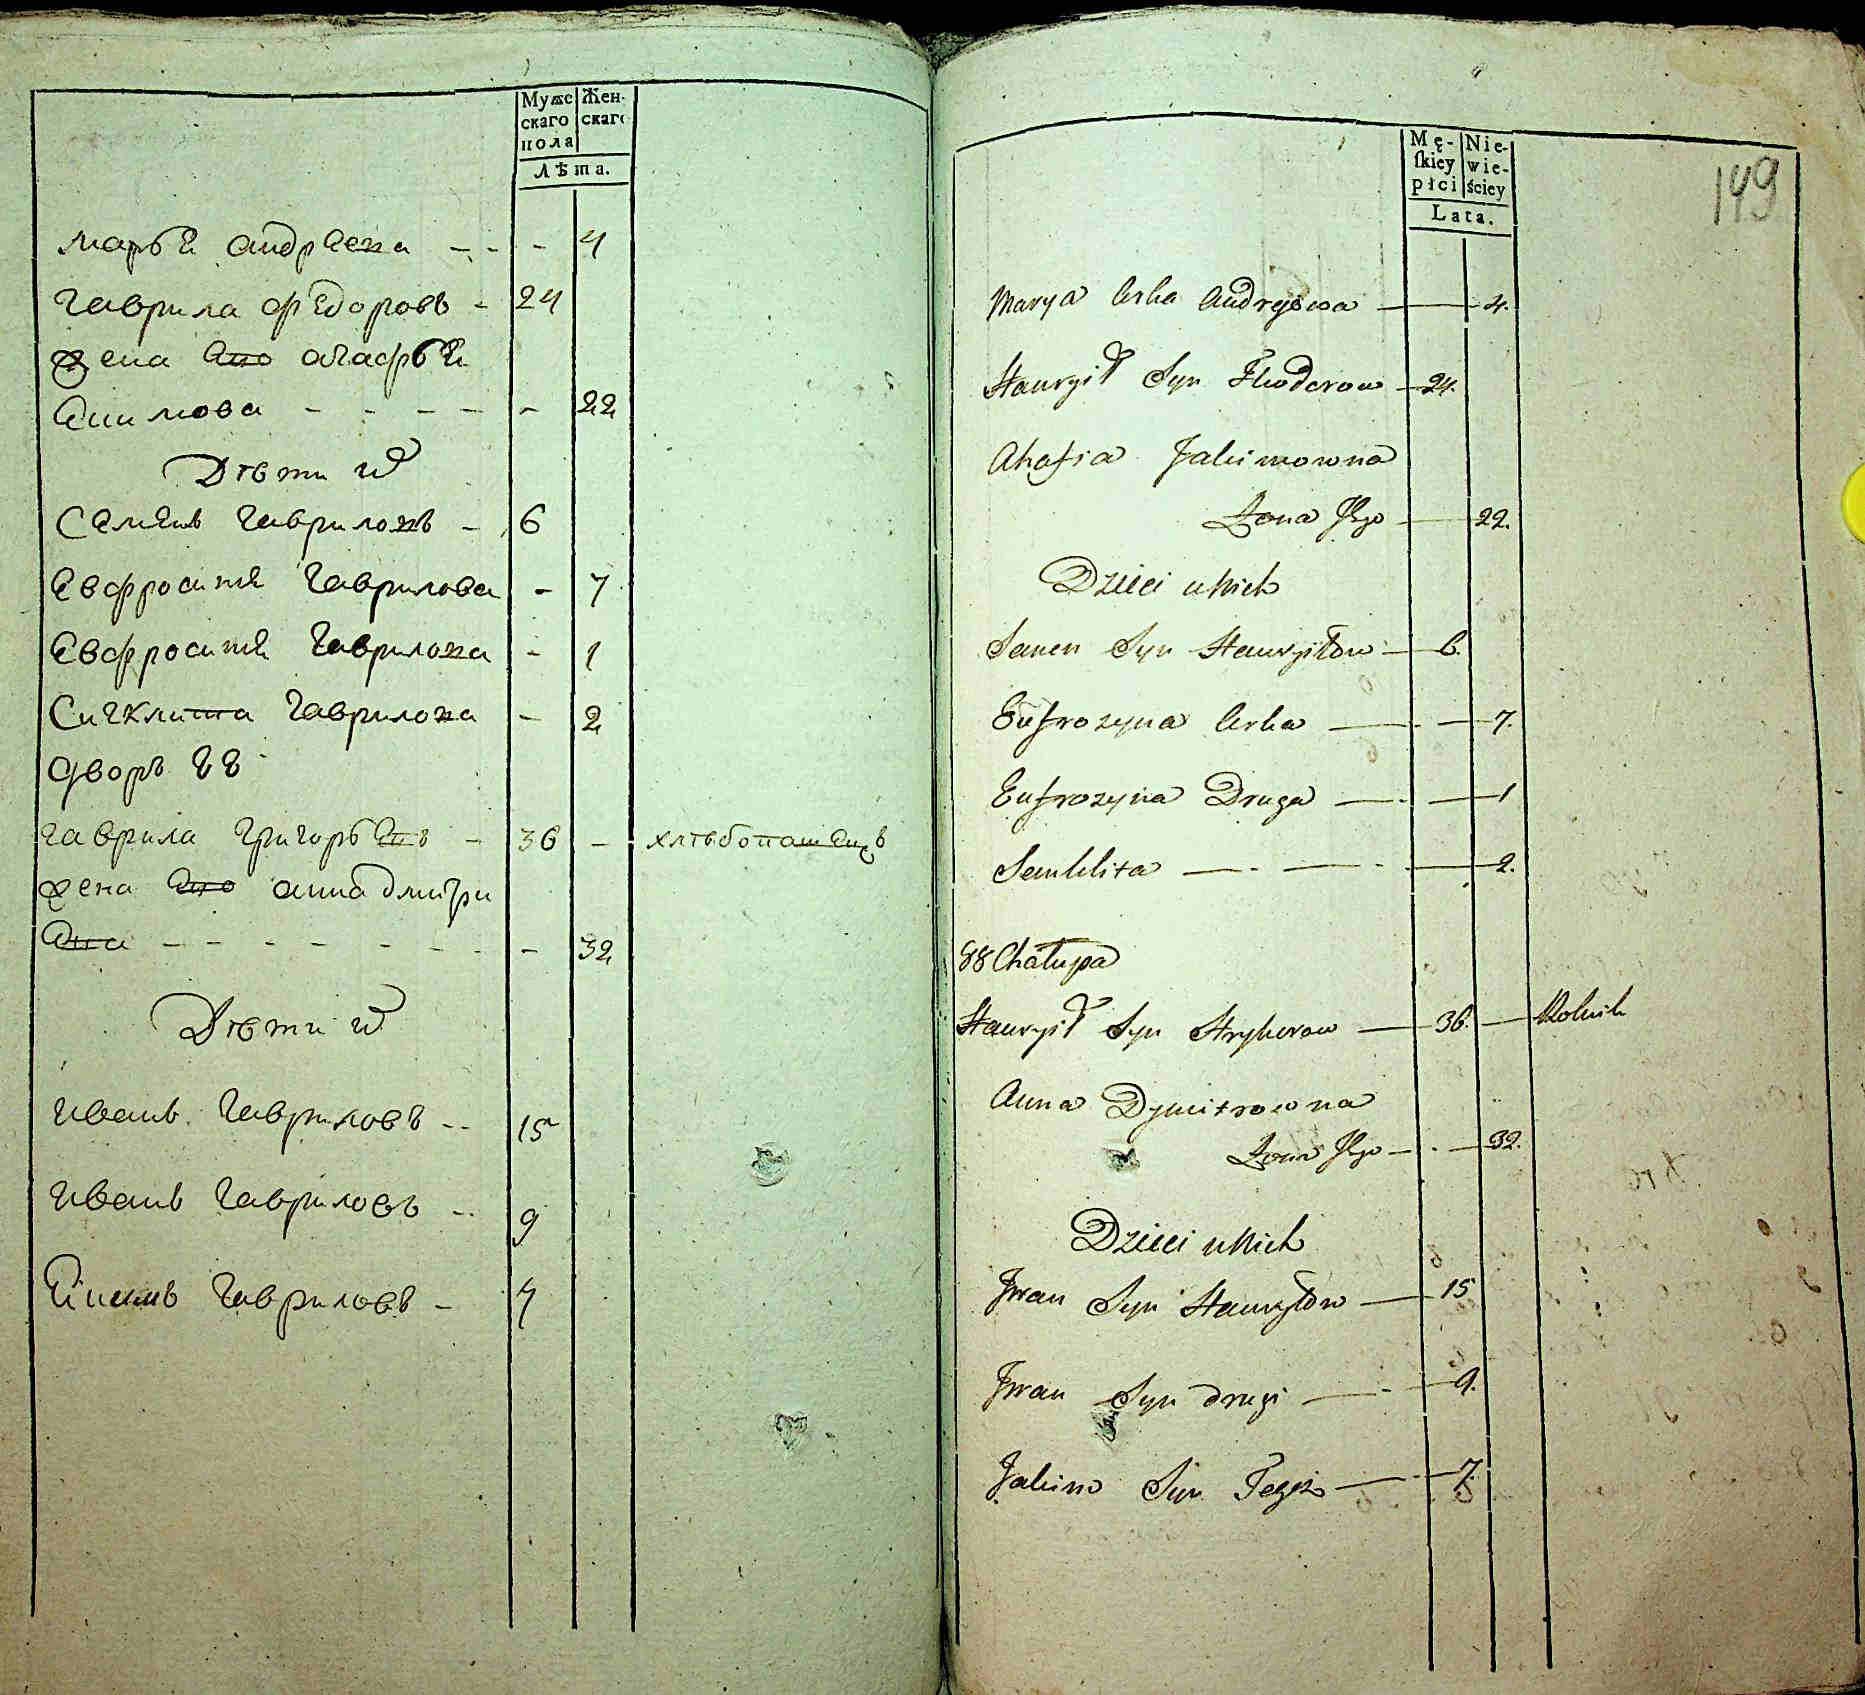 Муже
скаго
пола
Жен-
скаго
Лѣта.
Марья Андреева - - - 4
Гаврила Федоровъ - 24
жена Ево Агафья
Екимова - - - - - 22
Дѣти ихъ
Семенъ Гавриловъ - 6
Евфросинья Гаврилова - 7
Евфросинья Гаврилова - 1
Сигклита Гаврилова - 2
Дворъ 88
Гаврила Григорьевъ - 36 - хлѣбопашецъ
жена Ево Анна Дмитри
Ева - - - - - - - - 32
Дѣти ихъ
Иванъ Гавриловъ -- 15
Иванъ Гавриловъ -- 9
Екимъ Гавриловъ - 7
Mę-
skiey
płci
Nie-
wie-
ściey
Lata.
149
Marya Corka Andrejowa — 4.
Hawryił Syn Fhodorow — 24.
Ahafia Jakimowna
Żona Jego — 22.
Dzieci u Nich
Semen Syn Hawryiłow — 6.
Eufrozyna Corka — 7.
Eufrozyna Druga — 1
Senklita — 2.
88 Chałupa
Hawryił Syn Hryhorow — 36. — Rolnik
Anna Dymitrowna
Żona Jego — 32.
Dzieci u Nich
Jwan Syn Hawryłow — 15
Jwan Syn drugi — 9.
Jakim Syn Trzeci — 7.